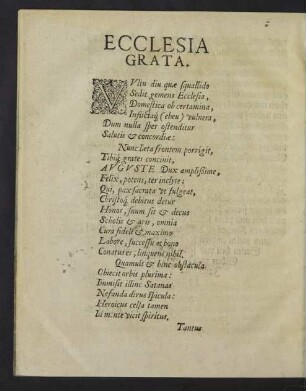 ECCLESIA
GRATA.
VUltu diu quæ squallido
Sedit gemens Ecclesia,
Domestica ob certamina,
Inflictaq́; (eheu) vulnera,
Dum nulla spes ostenditur
Salutis & concordiæ:
Nunc læta frontem porrigit,
Tibiq́; grates concinit,
AVGVSTE Dux amplissime,
Felix, potens, ter inclyte:
Qui, pax sacrata vt fulgeat,
Christoq́; debitus detur
Honor, suum sit & decus
Scholis & aris, omnia
Cura fideli & maximo
Labore, successu et bono
Conatus es, linquens nihil.
Quamuis & hinc obstacula
Obiecit orbis plurima:
Immisit illinc Satanas
Nefanda dirus spicula:
Heroicus celsa tamen
Id mente vicit spiritus,
Tantus